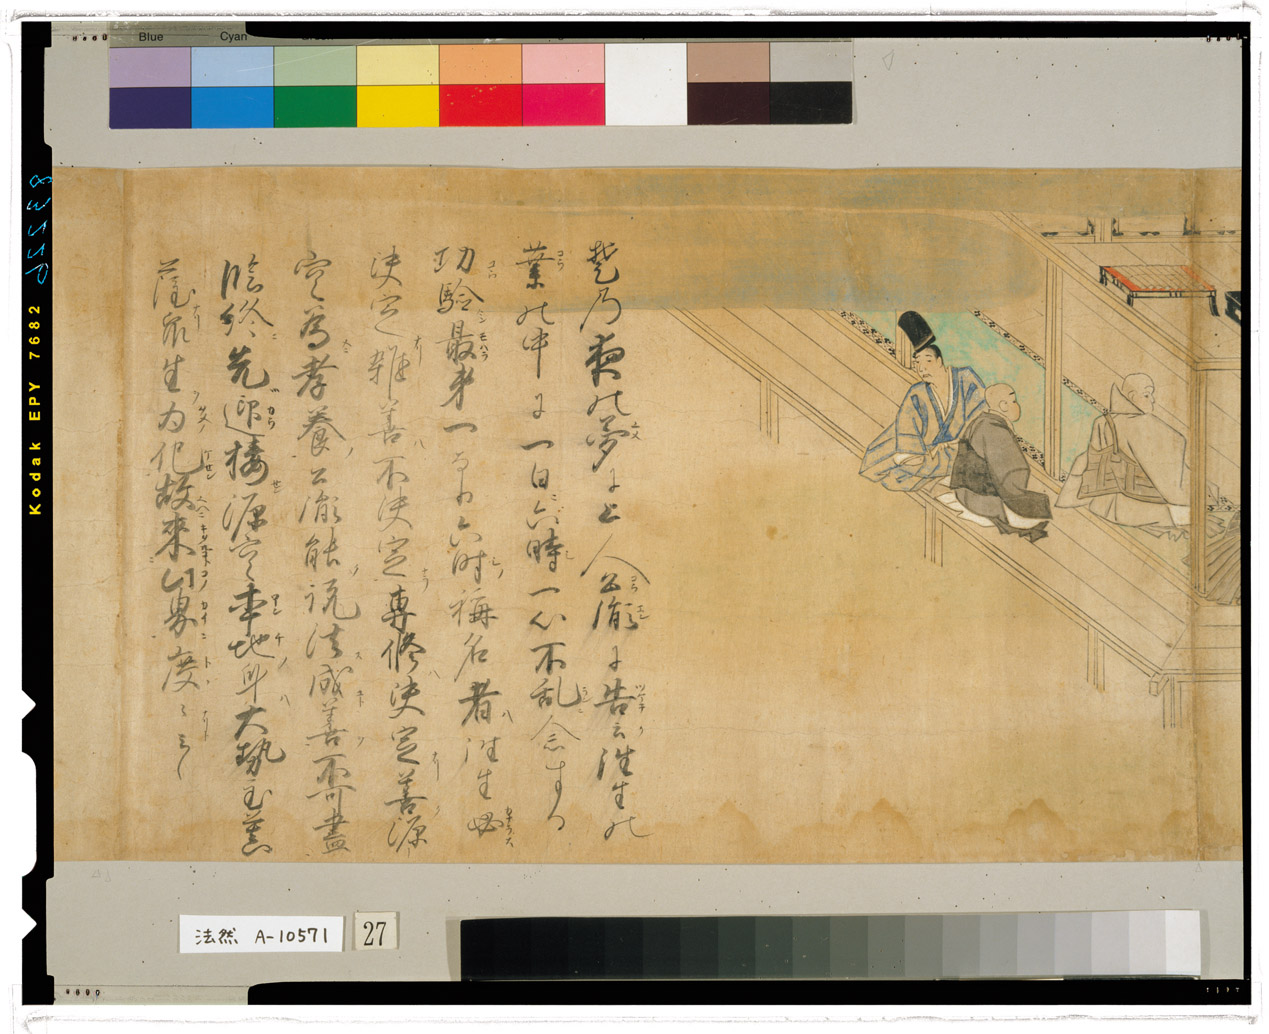 Blue Cyan
Kodak EPY 7682
乃夜の夢に上人公胤に告云往生の
業の中に一日六時一心不乱念する
功験最第一なり六時称名者往生必
決定雑善不決定専修決定善源
空為孝養公胤能説法感善不可盡
臨終先迎接源空本地身大勢至菩
薩衆生為化故来此界度
法然 A-10571
27